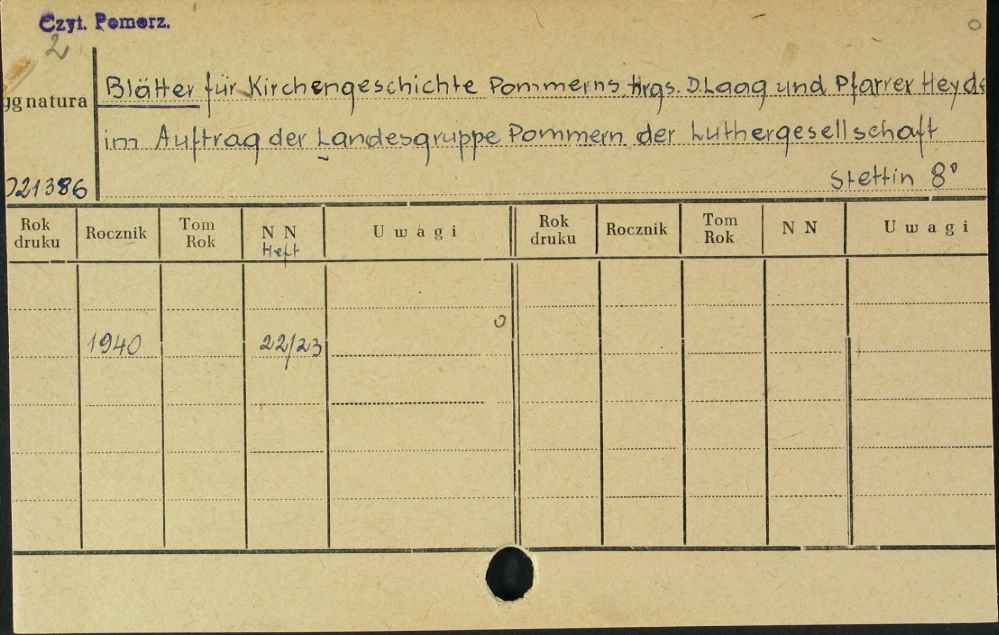 Czyt. Pomorz.
2
ygnatura
Blätter für Kirchengeschichte Pommerns. Hrgs. D. Laag und Pfarrer Heyde
im Auftrag der Landesgruppe Pommern der Luthergesellschaft
021386
Stettin 8°
Rok druku Rocznik Tom Rok N N Heft Uwagi Rok druku Rocznik Tom Rok N N Uwagi
1940 22/23